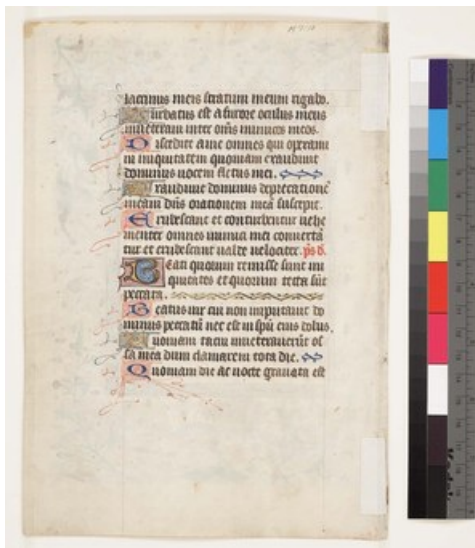 lacrimis meis stratum meum rigabo.
Turbatus est a furore oculus meus
inveteravi inter om̄s inimicos meos.
Discedite a me omnes qui operami
ni iniquitatem quoniam exaudivit
dominus vocem fletus mei.
Exaudivit dominus deprecationē
meam dn̄s orationem meā suscepit.
Erubescant et conturbentur vehe
menter omnes inimici mei convertā
tur et erubescant valde velociter. ps̄ d̄.
Beati quorum remisse sunt ini
quitates et quorum tecta sūt
peccata.
Beatus vir cui non imputavit do
minus peccatū nec est in spū eius dolus.
Quoniam tacui inveteraverūt os
sa mea dum clamarem tota die.
Quoniam die ac nocte gravata est